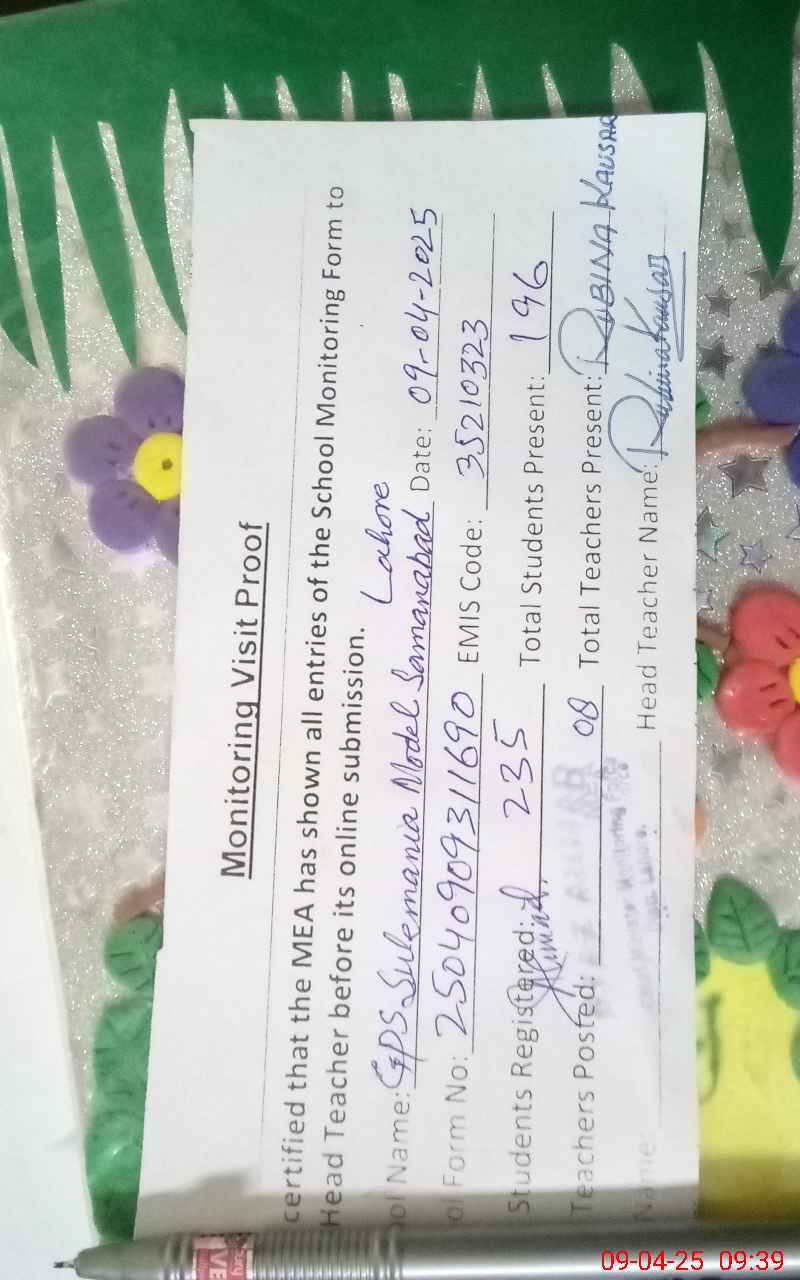 Monitoring Visit Proof
certified that the MEA has shown all entries of the School Monitoring Form to
Head Teacher before its online submission.
ol Name: GPS Sulemania Model Samanabad Lahore Date: 09-04-2025
ol Form No: 25040909311690 EMIS Code: 35210323
Students Registered: 235 Total Students Present: 196
Teachers Posted: 08 Total Teachers Present: RUBINA KAUSAR
Name: Head Teacher Name: Rubina Kausar
09-04-25 09:39